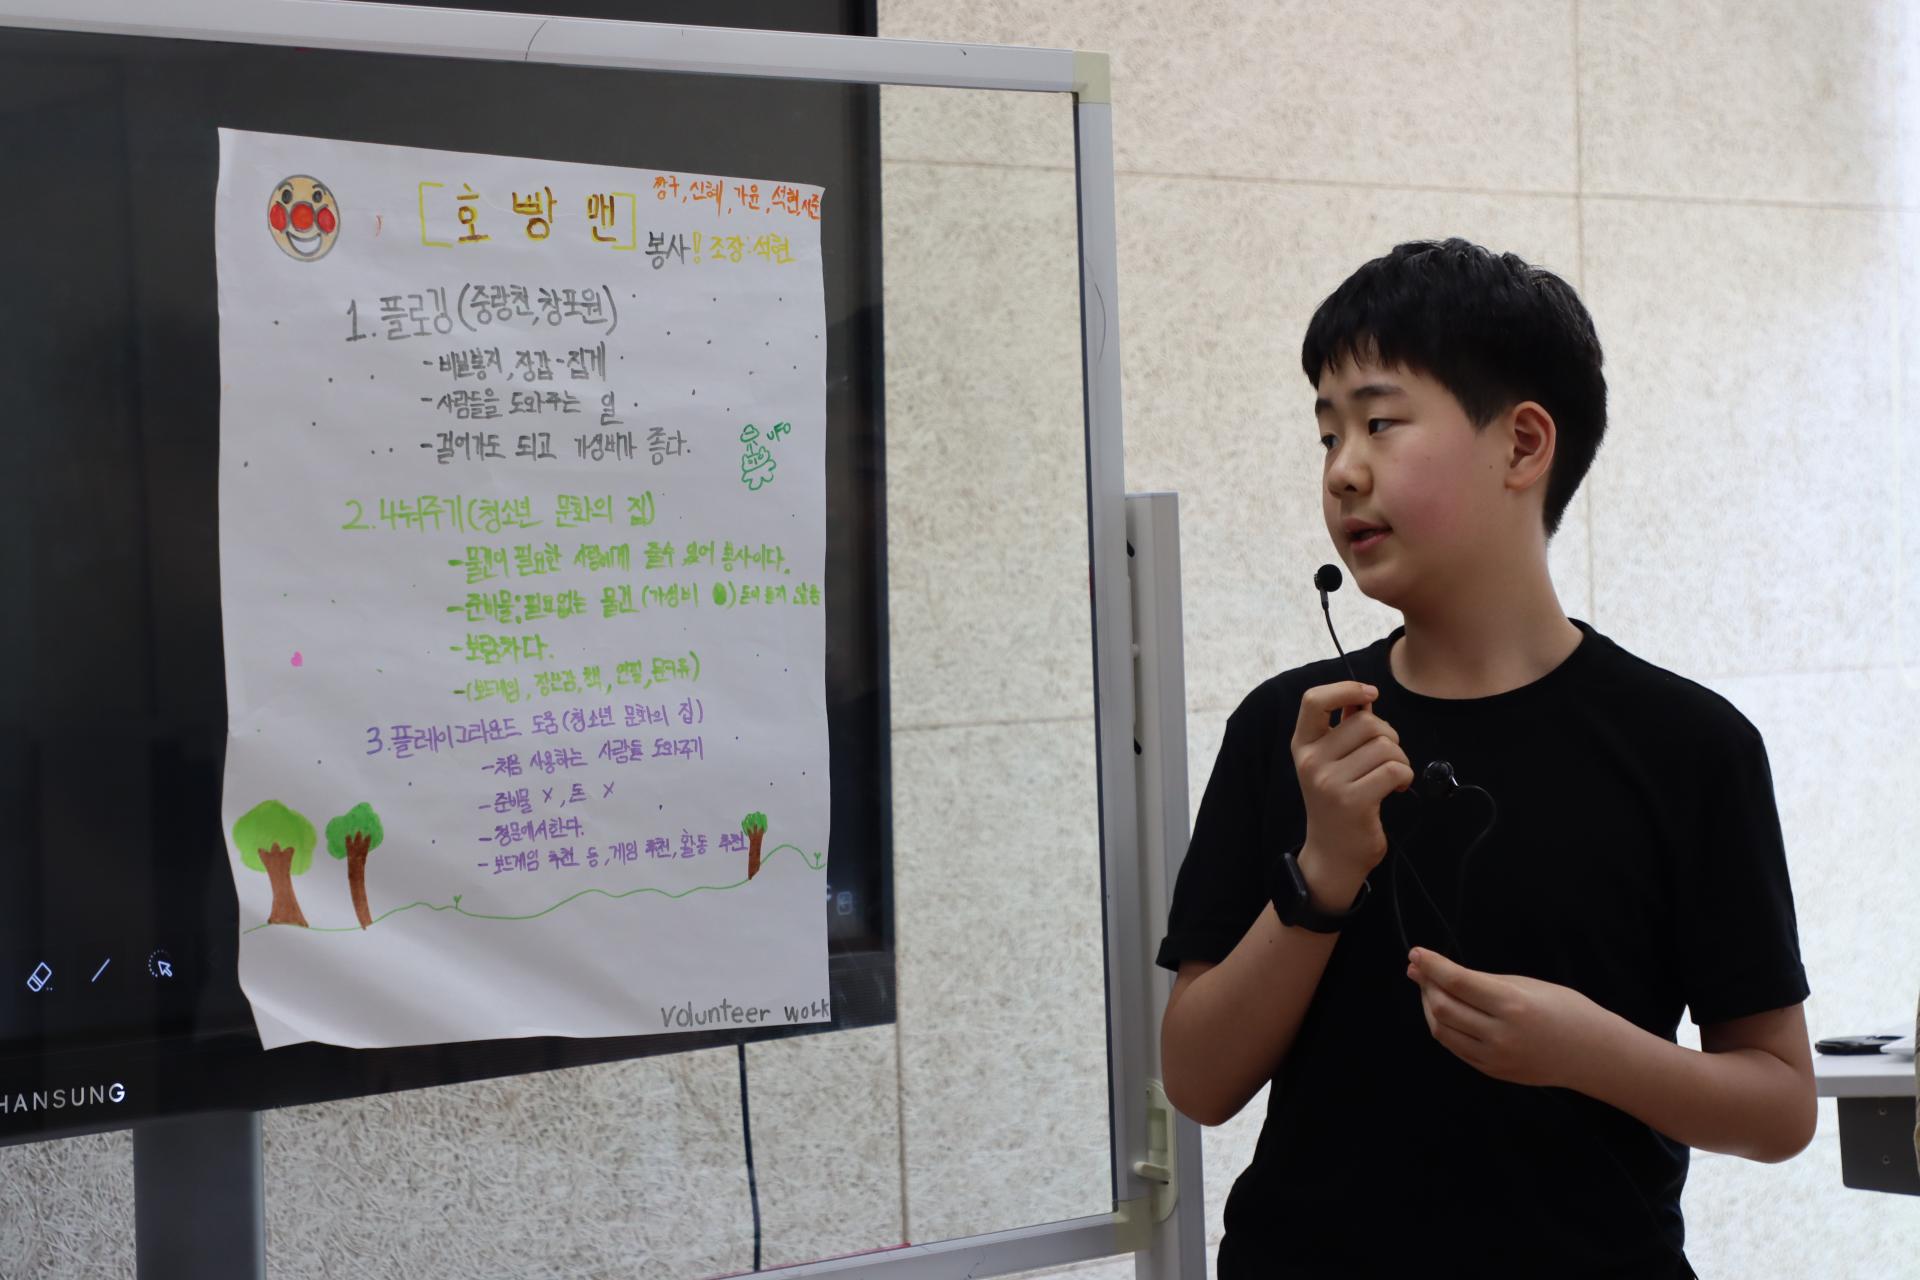 [호빵맨]
짱구, 신혜, 가윤, 석현, 서준
봉사! 조장:석현
1. 플로깅(중랑천, 창포원)
- 비닐봉지, 장갑-집게
- 사람들을 도와주는 일
- 걸어가도 되고 가성비가 좋다.
UFO
2. 나눠주기(청소년 문화의 집)
- 물건이 필요한 사람에게 줄수 있어 봉사이다.
- 준비물: 필요없는 물건 (가성비 ) 돈이 들지 않음
- 보람차다.
- (보드게임, 장난감, 책, 연필, 문구류)
3. 플레이그라운드 도움(청소년 문화의 집)
- 처음 사용하는 사람들 도와주기
- 준비물 X, 돈 X
- 보드게임 추천 등, 게임 추천, 활동 추천
volunteer work
HANSUNG